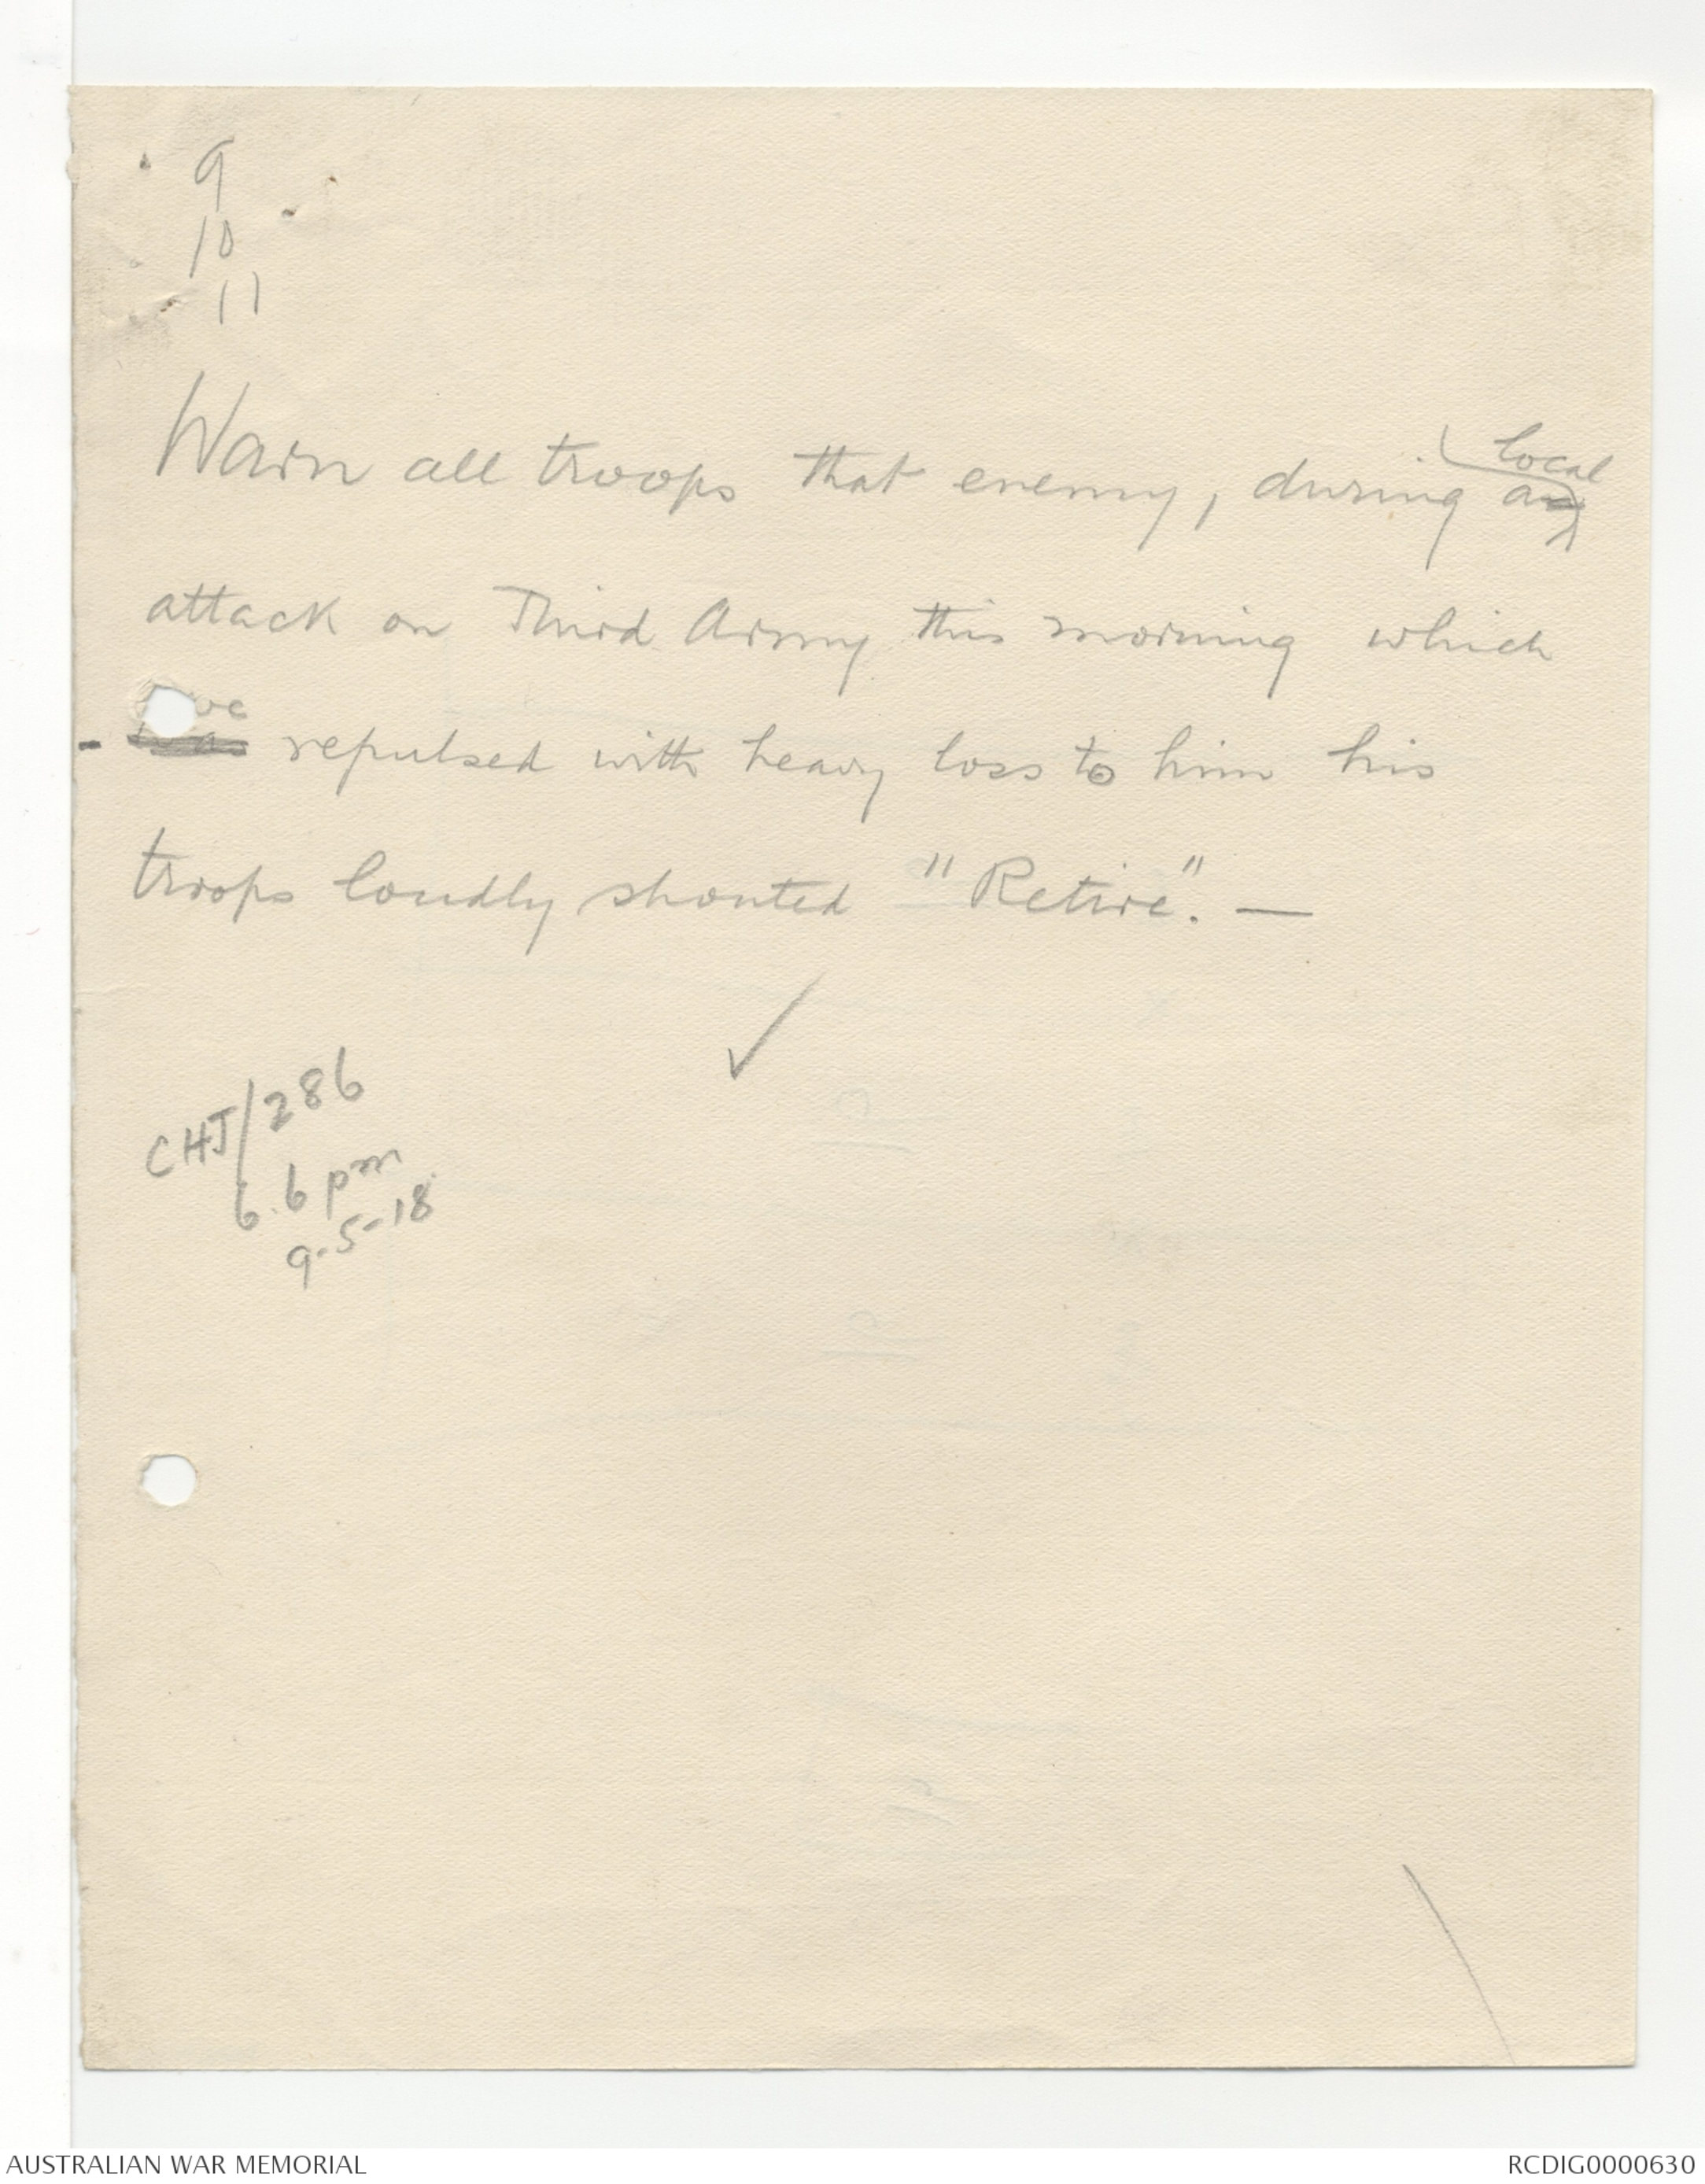 9
10
11
local
Warn all troops that enemy, during a
attack on Third Army this morning which
we
was repulsed with heavy loss to him his
troops loudly shouted "Retire". —
✓
CHJ/286
6.6 pm
9-5-18
AUSTRALIAN WAR MEMORIAL
RCDIG0000630